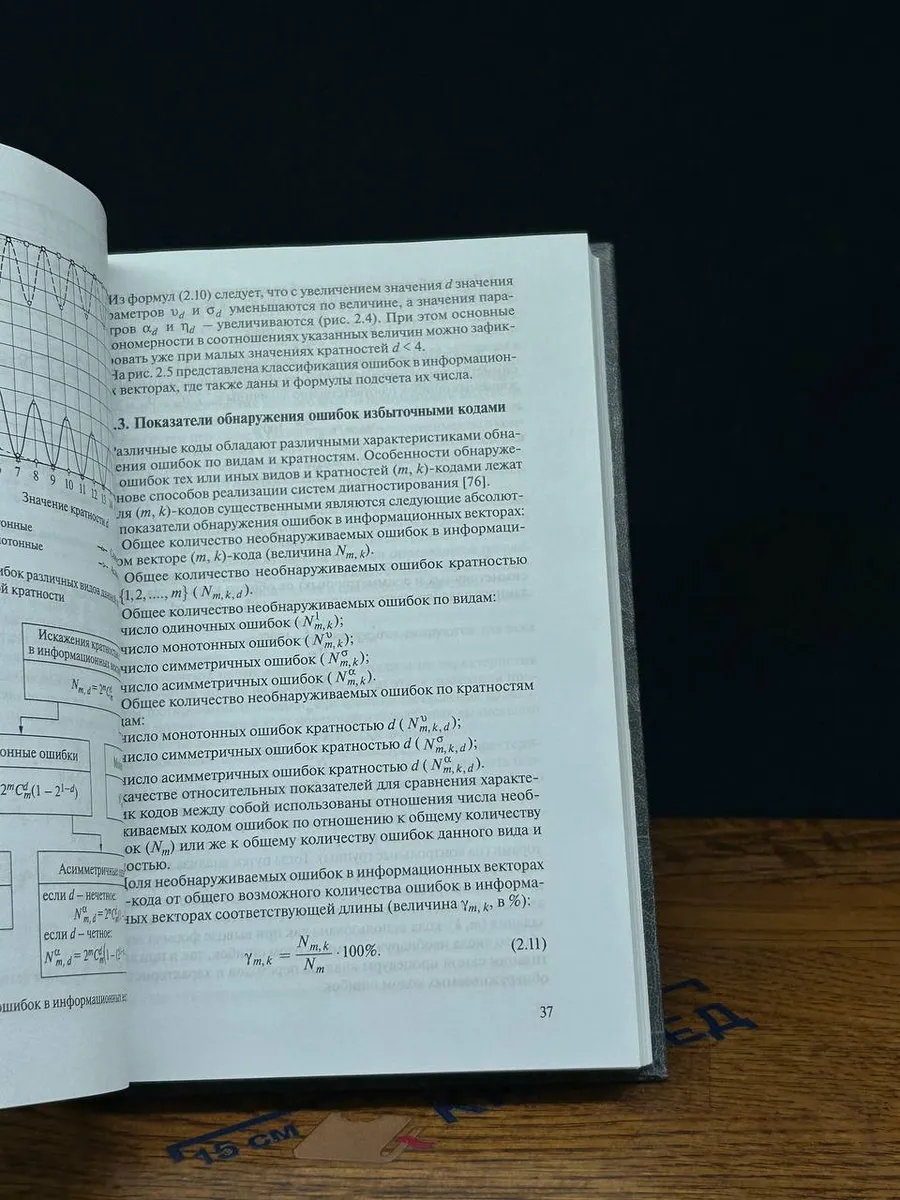 7 8 9 10 11 12 13
Значение кратности d
Искажения
в информационных
N m, d = 2^m C_m^d
ошибки
2^m C_m^d (1 – 2^{1–d})
Асимметричные
если d – нечетное:
N^α_{m, d} = 2^m C_m^d
если d – четное:
N^α_{m, d} = 2^m C_m^d
ошибок в информационных
Из формул (2.10) следует, что с увеличением значения d значения
υ_d и σ_d уменьшаются по величине, а значения пара-
α_d и η_d — увеличиваются (рис. 2.4). При этом основные
в соотношениях указанных величин можно зафик-
уже при малых значениях кратностей d < 4.
На рис. 2.5 представлена классификация ошибок в информацион-
векторах, где также даны и формулы подсчета их числа.
.3. Показатели обнаружения ошибок избыточными кодами
Различные коды обладают различными характеристиками обна-
ошибок по видам и кратностям. Особенности обнаруже-
ошибок тех или иных видов и кратностей (m, k)-кодами лежат
способов реализации систем диагностирования [76].
(m, k)-кодов существенными являются следующие абсолют-
показатели обнаружения ошибок в информационных векторах:
Общее количество необнаруживаемых ошибок в информаци-
векторе (m, k)-кода (величина N_{m, k}).
Общее количество необнаруживаемых ошибок кратностью
{1, 2, ...., m} (N_{m, k, d}).
Общее количество необнаруживаемых ошибок по видам:
число одиночных ошибок (N^1_{m, k});
число монотонных ошибок (N^υ_{m, k});
число симметричных ошибок (N^σ_{m, k});
число асимметричных ошибок (N^α_{m, k}).
Общее количество необнаруживаемых ошибок по кратностям
число монотонных ошибок кратностью d (N^υ_{m, k, d});
число симметричных ошибок кратностью d (N^σ_{m, k, d});
число асимметричных ошибок кратностью d (N^α_{m, k, d}).
качестве относительных показателей для сравнения характе-
кодов между собой использованы отношения числа необ-
кодом ошибок по отношению к общему количеству
(N_m) или же к общему количеству ошибок данного вида и
Доля необнаруживаемых ошибок в информационных векторах
-кода от общего возможного количества ошибок в информа-
векторах соответствующей длины (величина γ_{m, k}, в %):
γ_{m, k} = N_{m, k} / N_m · 100%. (2.11)
37
15 СМ